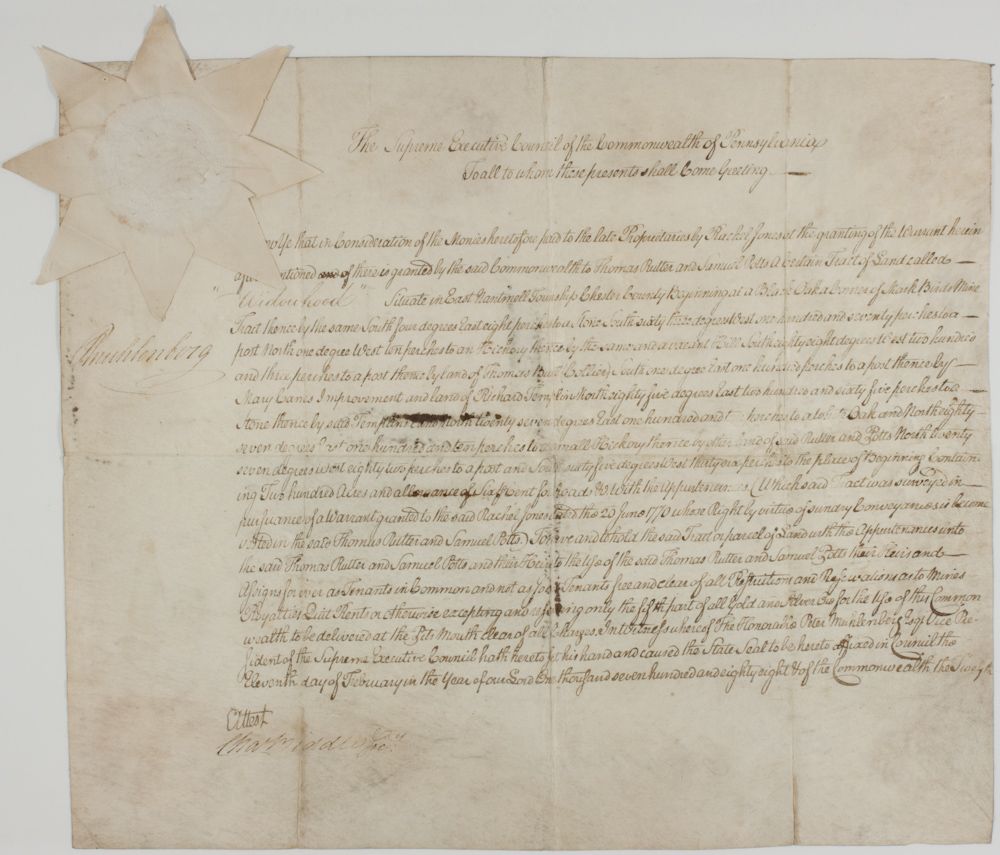 The Supreme Executive Council of the Commonwealth of Pennsylvania
To all to whom these presents shall Come Greeting
that in Consideration of the Monies heretofore paid to the late Proprietaries by Rachel Jones at the granting of the Warrant herein
after mentioned and of there is granted by the said Commonwealth to Thomas Rutter and Samuel Potts A Certain Tract of Land called
"Widowhood" Situate in East Nantmell Township Chester County Beginning at a Black Oak a Corner of Mark Birds Mine
Tract thence by the same South four degrees East eight perches to a Stone South sixty three degrees West one hundred and seventy perches to a
post North one degree West ten perches to an Hickory thence by the same and a vacant Hill South eighty eight degrees West two hundred
and three perches to a post thence by land of Thomas Bull Collier South one degree East one hundred perches to a post thence by
Mary Canes Improvement and land of Richard Templin North eighty five degrees East two hundred and sixty five perches to a
Stone thence by said Templins Land North twenty seven degrees East one hundred and perches to a Oak and North eighty
seven degrees East one hundred and ten perches to a small Hickory thence by other land of said Rutter and Potts North twenty
seven degrees West eighty two perches to a post and South sixty five degrees West thirty six perches to the place of Beginning Contain
ing Two hundred Acres and allowance of Six ⅌ Cent for Roads &c With the Appurtenances (Which said Tract was surveyed in
pursuance of a Warrant granted to the said Rachel Jones dated the 20 June 1770 whose Right by virtue of sundry Conveyances is become
vested in the said Thomas Rutter and Samuel Potts) To have and to hold the said Tract or parcel of Land with the Appurtenances unto
the said Thomas Rutter and Samuel Potts and their Heirs to the Use of the said Thomas Rutter and Samuel Potts their Heirs and
Assigns for ever as Tenants in Common and not as Joint Tenants free and clear of all Restrictions and Reservations as to Mines
Royalties Quit Rents or otherwise excepting and reserving only the fifth part of all Gold and Silver Ore for the Use of this Common
wealth to be delivered at the Pits Mouth clear of all Charges. In Witness whereof The Honorable Peter Muhlenberg Esqr Vice Pre
sident of the Supreme Executive Council hath hereto set his hand and caused the State Seal to be hereto affixed in Council the
Eleventh day of February in the Year of our Lord One thousand seven hundred and eighty eight & of the Commonwealth the Twelfth
Muhlenberg
Attest
Chas Biddle Secy